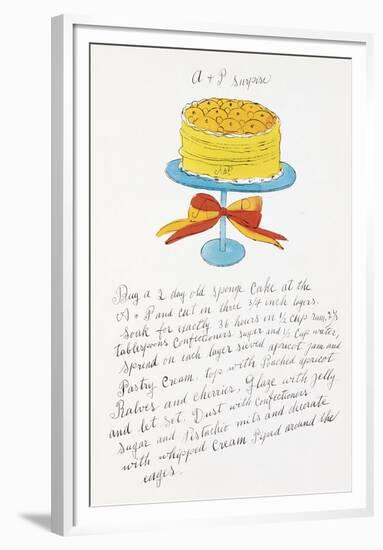 A + P Surpise
A & P
Buy a 2 day old sponge Cake at the
A + P and cut in three 3/4 inch layers.
Soak for exactly 36 hours in 1/2 cup rum, 2 1/2
tablespoons Confectioners sugar and 1/2 Cup water,
spread on each layer sieved apricot jam and
Pastry Cream. top with Poached apricot
Halves and cherries. Glaze with Jelly
and let set. Dust with confectioners
sugar and Pistachio nuts and decorate
with whipped Cream Piped around the
edges.